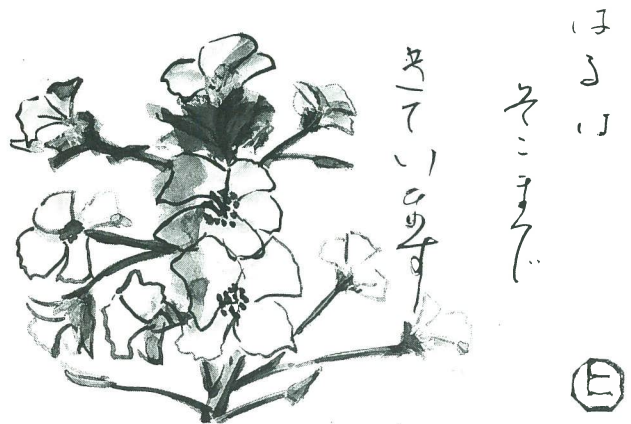 はるは
そこまで
きています
E